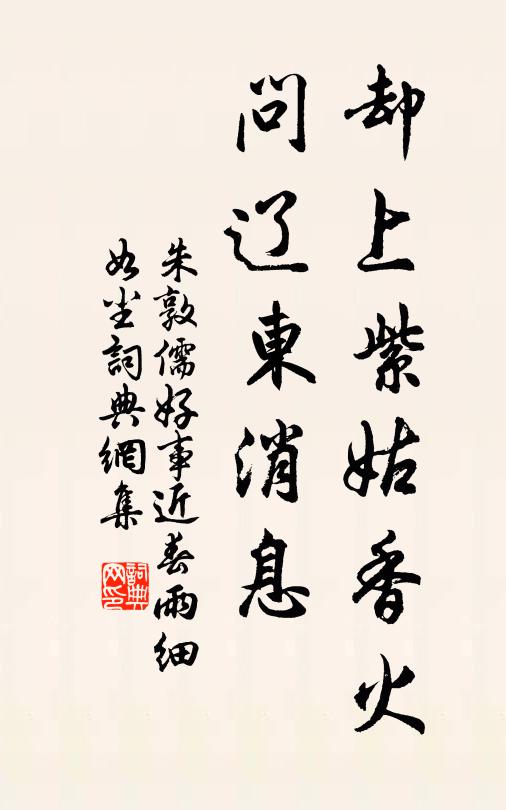 却上紫姑香火
问辽東消息
朱敦儒好事近春雨细
如尘詞典網集
詞典网印